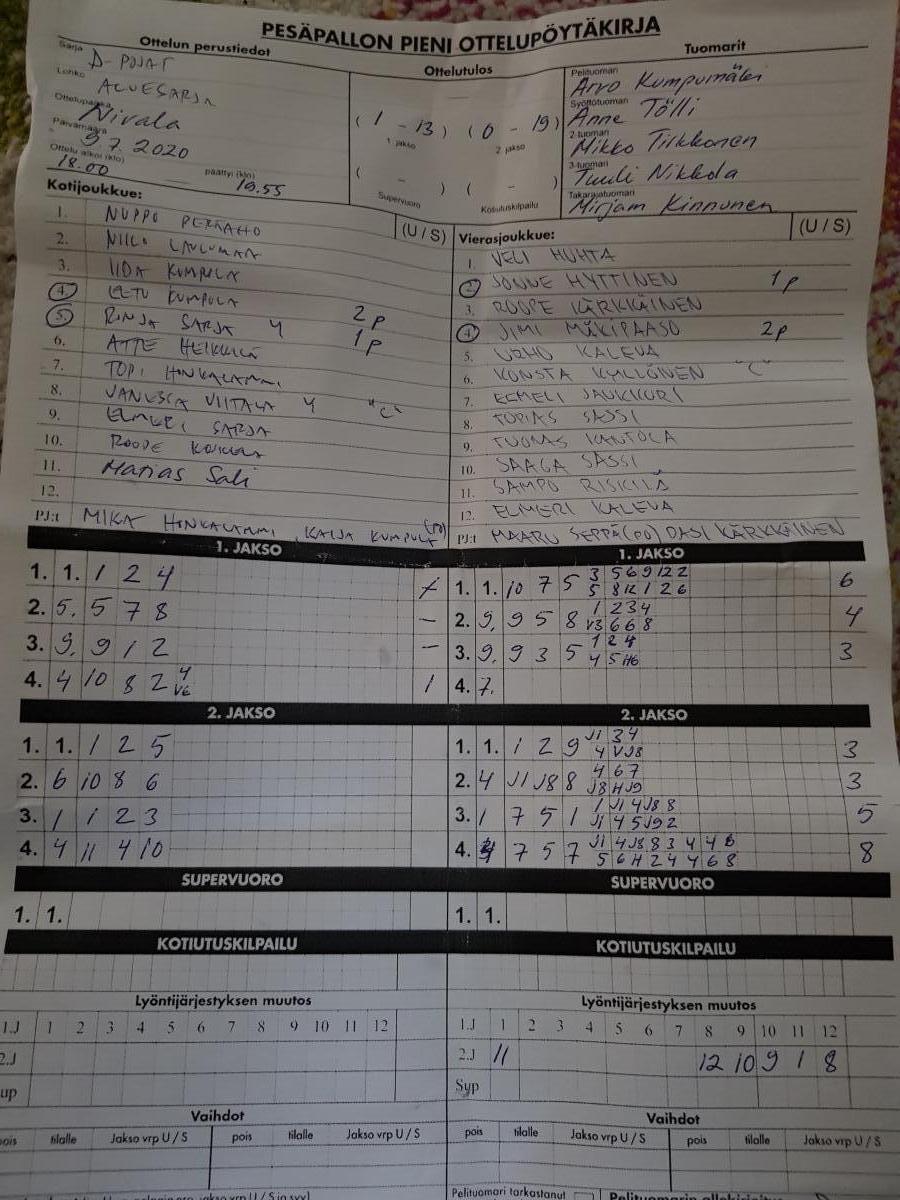 PESÄPALLON PIENI OTTELUPÖYTÄKIRJA
Ottelun perustiedot
Sarja D-POJAT
Lohko ALUESARJA
Ottelupaikka Nivala
Päivämäärä 9.7.2020
Ottelu alkoi (klo) 18.00 päättyi (klo) 19.55
Ottelutulos
( 1 - 13 ) ( 0 - 19 )
1. jakso 2. jakso
( - ) ( - )
Supervuoro Kotiutuskilpailu
Tuomarit
Pelituomari Arvo Kumpumäki
Syöttötuomari Anne Tölli
2-tuomari Mikko Tirkkonen
3-tuomari Tuuli Nikkola
Takarajatuomari Mirjam Kinnunen
Kotijoukkue: (U / S)
1. NUPPO PERÄAHO
2. NIILO
3. IIDA KUMPULA
4. EETU KUMPULA 2p
5. RONJA SARJA 4 1p
6. ATTE HEIKKILÄ
7. TOPI HINKALAMMI
8. VANESSA VIITALA 4 "C"
9. ELMERI SARJA
10. ROOPE
11. Matias Sali
12.
PJ:t MIKA HINKALAMMI, KAIJA KUMPULA (PO)
Vierasjoukkue: (U / S)
1. VELI HUHTA
2. JONNE HYTTINEN 1p
3. ROOPE KÄRKKÄINEN
4. JIMI MÄKIPAASO 2p
5. URHO KALEVA
6. KONSTA KYLLÖINEN "C"
7. EEMELI JAUKKURI
8. TOPIAS SASSI
9. TUOMAS KANTOLA
10. SAAGA SASSI
11. SAMPO RISKILÄ
12. ELMERI KALEVA
PJ:t MAARU SEPPÄ (PO) PASI KÄRKKÄINEN
1. JAKSO
1. 1. 1 2 4 -
2. 5. 5 7 8 -
3. 9. 9 1 2 -
4. 4 10 8 2 4 V6 1
1. JAKSO
1. 1. 10 7 5 3 5 6 9 12 2 6
5 8 12 1 2 6
2. 9. 9 5 8 1 2 3 4 4
V3 6 6 8
3. 9. 9 3 5 1 2 4 3
4 5 H6
4. 7.
2. JAKSO
1. 1. 1 2 5
2. 6 10 8 6
3. 1 1 2 3
4. 4 11 4 10
2. JAKSO
1. 1. 1 2 9 J1 3 4 3
4 V J8
2. 4 J1 J8 8 4 6 7 3
J8 H J9
3. 1 7 5 1 1 J1 4 J8 8 5
J1 4 5 J9 2
4. 7 5 7 J1 4 J8 8 3 4 4 6 8
5 6 H 2 4 4 6 8
SUPERVUORO
1. 1.
SUPERVUORO
1. 1.
KOTIUTUSKILPAILU
KOTIUTUSKILPAILU
Lyöntijärjestyksen muutos
1.J 1 2 3 4 5 6 7 8 9 10 11 12
2.J
up
Lyöntijärjestyksen muutos
1.J 1 2 3 4 5 6 7 8 9 10 11 12
2.J 11 12 10 9 1 8
Syp
Vaihdot
pois tilalle Jakso vrp U / S pois tilalle Jakso vrp U / S
Vaihdot
pois tilalle Jakso vrp U / S pois tilalle Jakso vrp U / S
Pelituomari tarkastanut